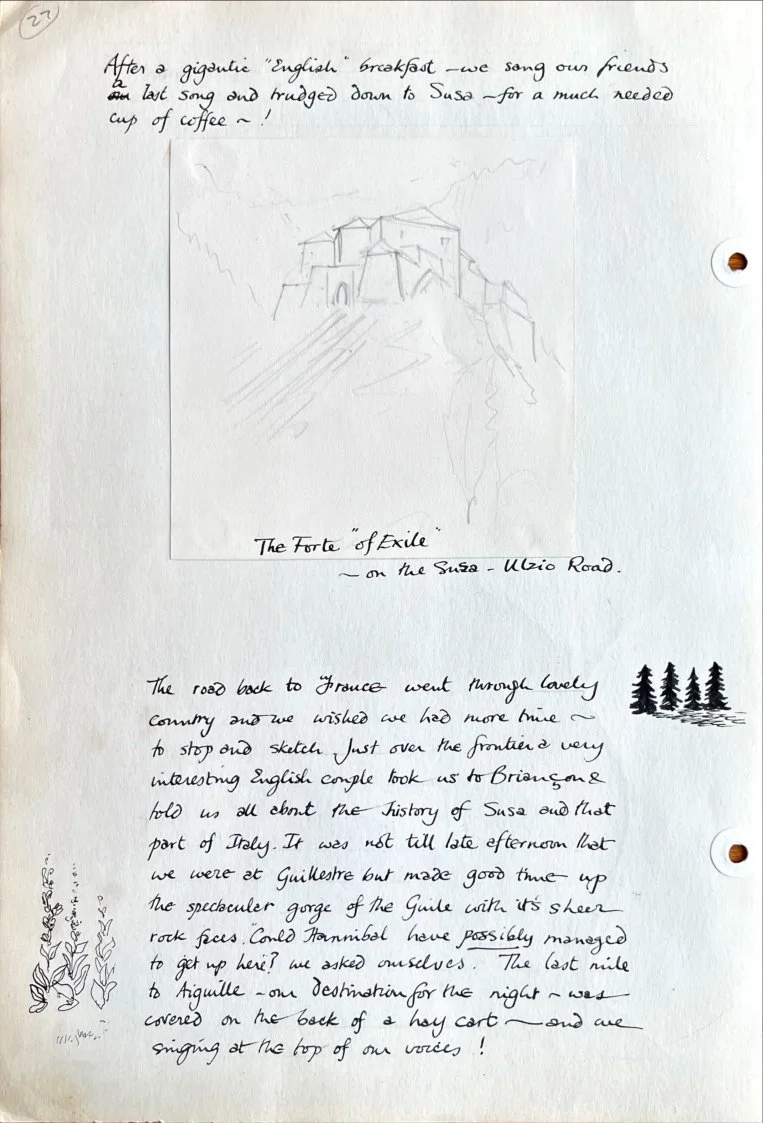 22
After a gigantic "English" breakfast - we sang our friends
a last song and trudged down to Susa - for a much needed
cup of coffee ~ !
The Forte "of Exile"
~ on the Susa - Ulzio Road.
The road back to France went through lovely
country and we wished we had more time ~
to stop and sketch. Just over the frontier a very
interesting English couple took us to Briançon &
told us all about the history of Susa and that
part of Italy. It was not till late afternoon that
we were at Guillestre but made good time up
the spectacular gorge of the Guile with it's sheer
rock faces. "Could Hannibal have possibly managed
to get up here? we asked ourselves. The last mile
to Aiguille - our destination for the night - was
covered on the back of a hay cart ~ and we
singing at the top of our voices !